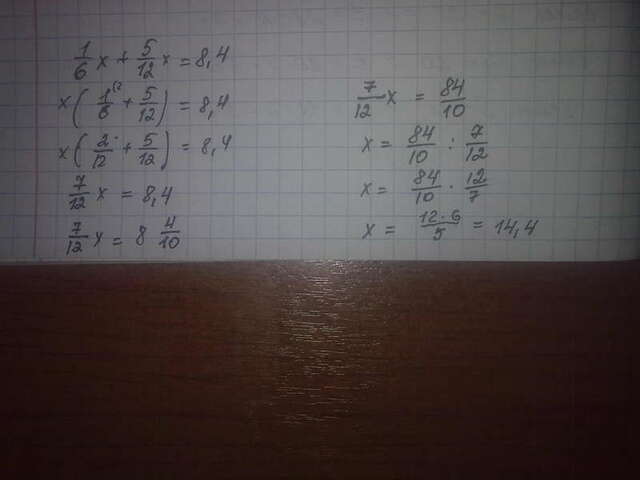 1/6 x + 5/12 x = 8,4
x ( 1/6 ⁽² + 5/12 ) = 8,4
x ( 2/12 + 5/12 ) = 8,4
7/12 x = 8,4
7/12 x = 8 4/10
7/12 x = 84/10
x = 84/10 : 7/12
x = 84/10 · 12/7
x = 12·6/5 = 14,4